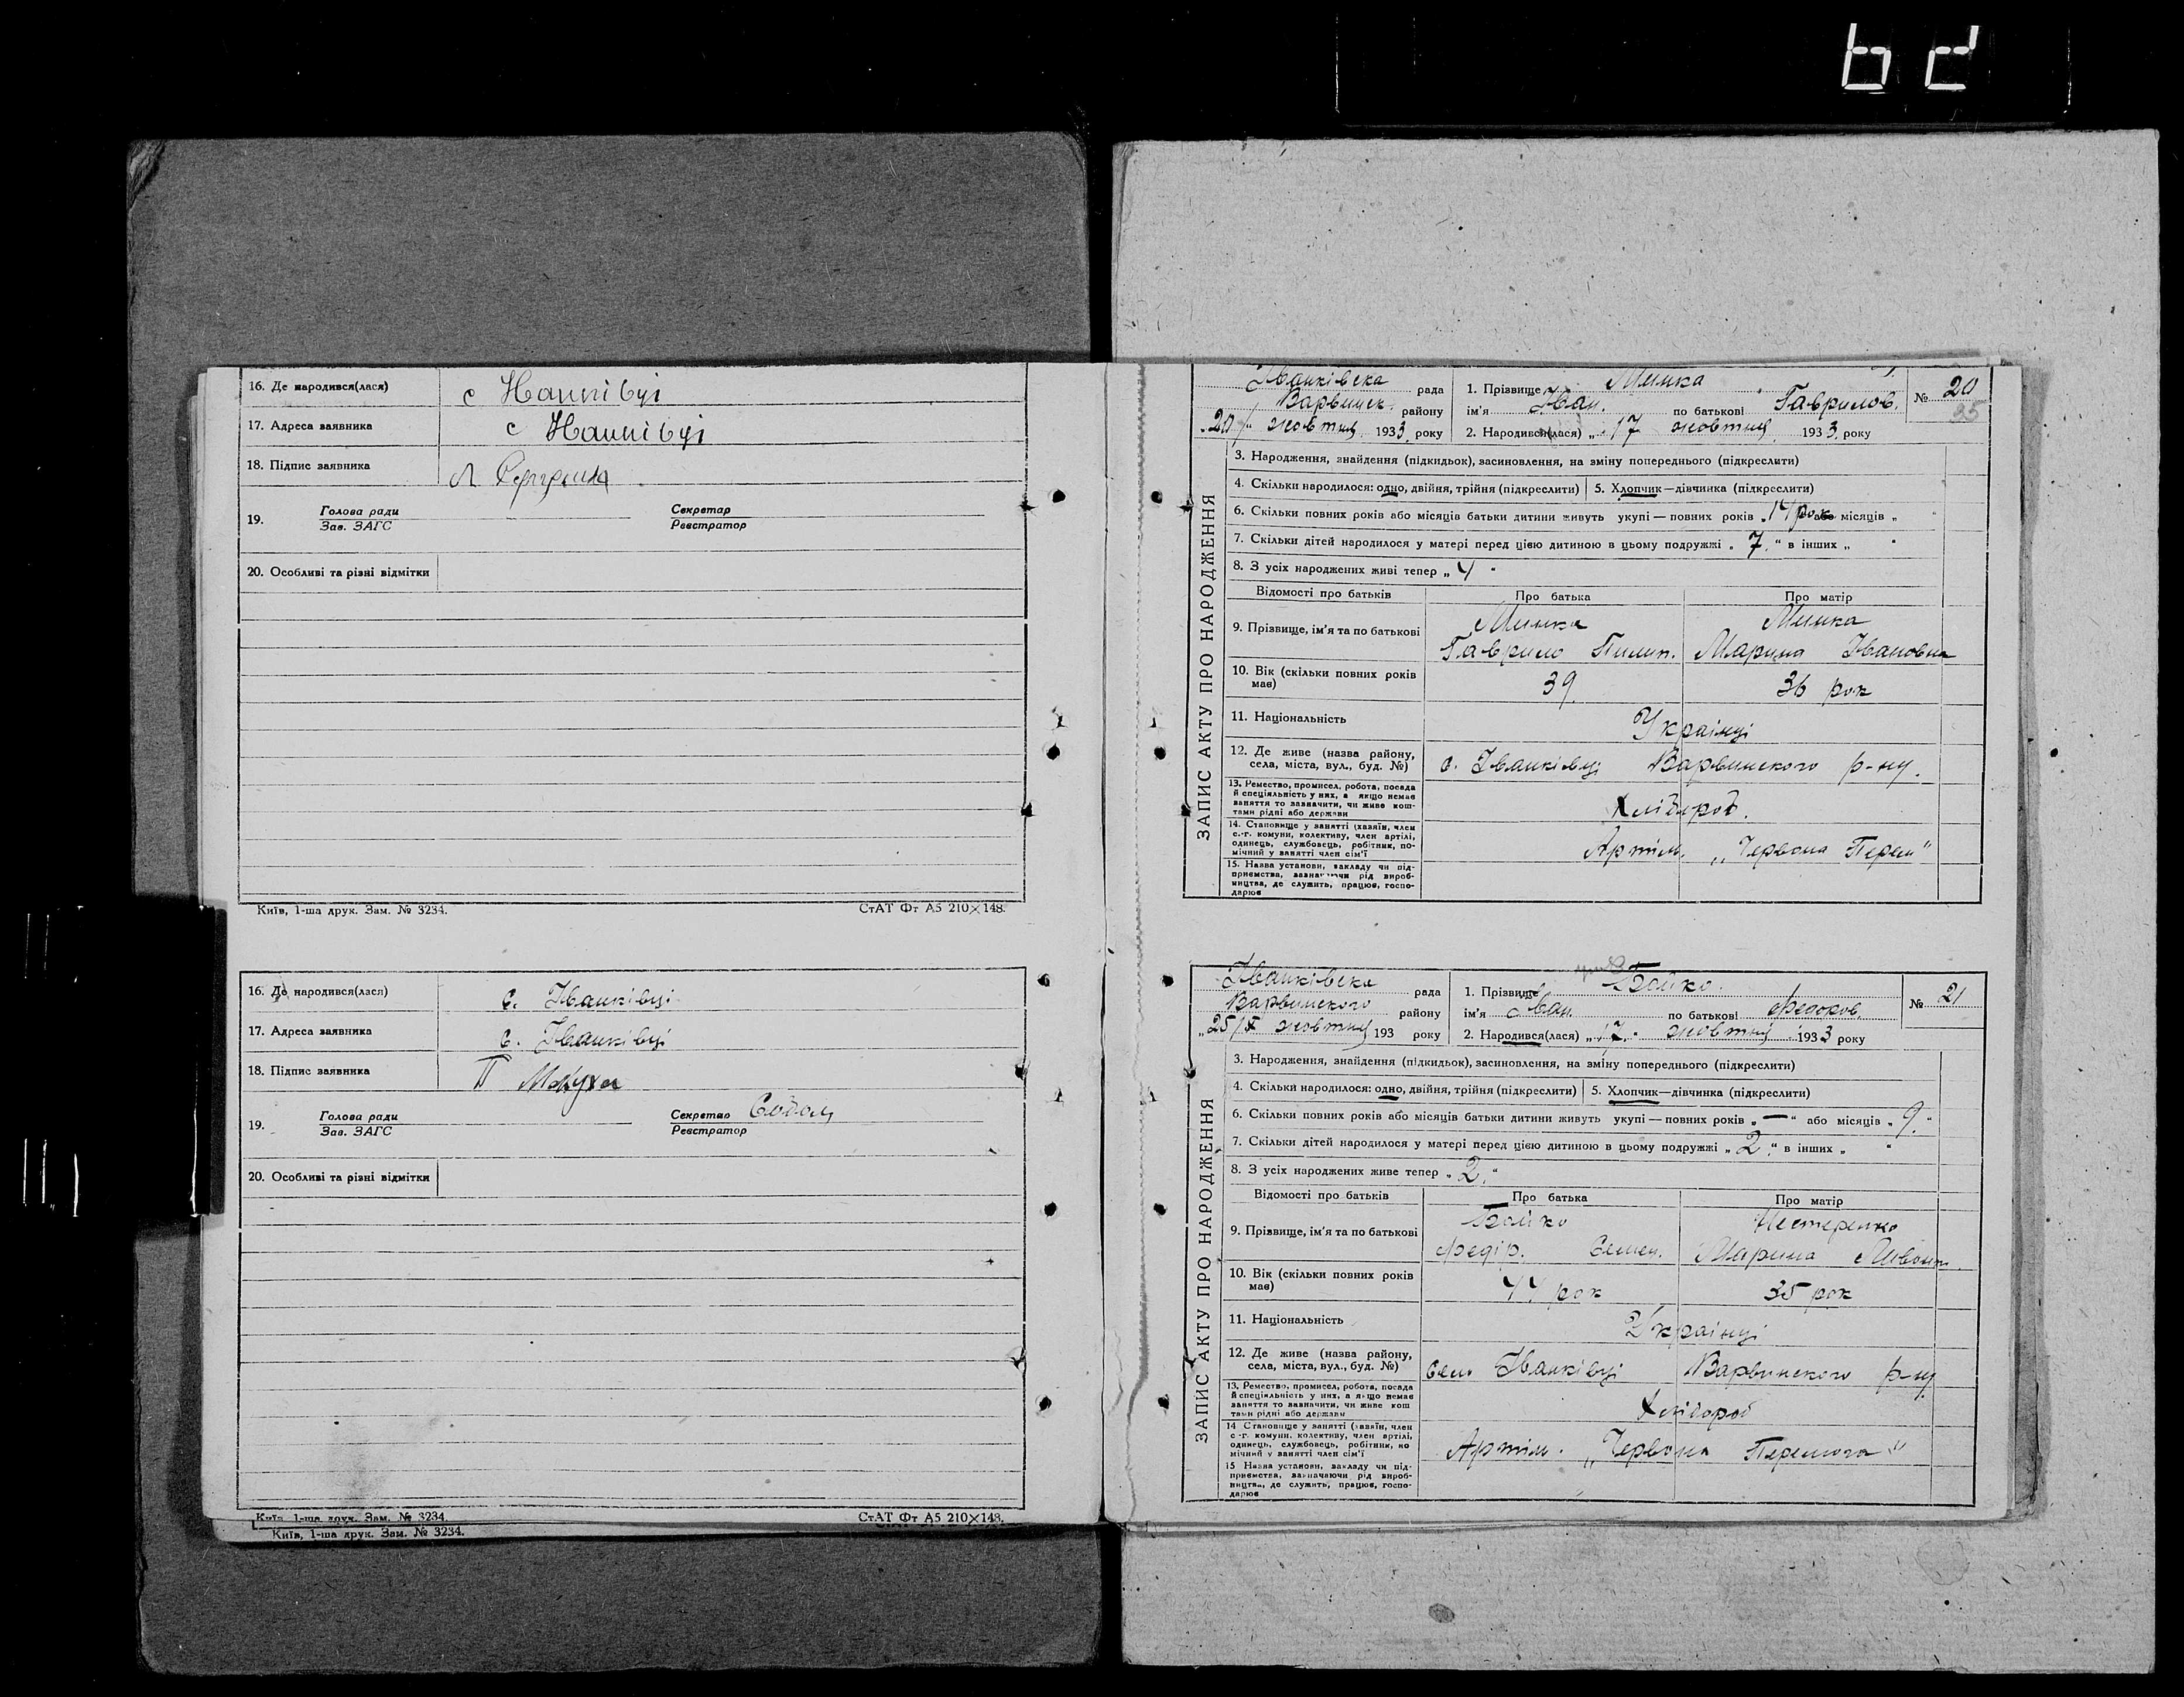 16. Де народився(лася)
17. Адреса заявника
18. Підпис заявника
19. Голова ради
Зав. ЗАГС
Секретар
Реєстратор
20. Особливі та різні відмітки
Київ, 1-ша друк. Зам. № 3234.
СтАТ Фт А5 210×148.
16. Де народився(лася) с. Іванківці
17. Адреса заявника с. Іванківці
18. Підпис заявника П Макуха
19. Голова ради
Зав. ЗАГС
Секретар
Реєстратор
20. Особливі та різні відмітки
Київ, 1-ша друк. Зам. № 3234.
СтАТ Фт А5 210×148.
Київ, 1-ша друк. Зам. № 3234.
Іванківска рада
Варвинск. району
„20/ жовтня 1933 року
1. Прізвище Минка
ім'я Іван. по батькові Гаврилов.
2. Народився(лася) „17 жовтня 1933 року
№ 20
ЗАПИС АКТУ ПРО НАРОДЖЕННЯ
3. Народження, знайдення (підкидьок), засиновлення, на зміну попереднього (підкреслити)
4. Скільки народилося: одно, двійня, трійня (підкреслити) 5. Хлопчик—дівчинка (підкреслити)
6. Скільки повних років або місяців батьки дитини живуть укупі — повних років „14 рок або місяців „
7. Скільки дітей народилося у матері перед цією дитиною в цьому подружжі „7.“ в інших „ “
8. З усіх народжених живі тепер „4“
Відомості про батьків Про батька Про матір
9. Прізвище, ім'я та по батькові Минка Минка
Гаврило Пилип. Марина Івановна
10. Вік (скільки повних років має) 39. 36 рок
11. Національність Українці
12. Де живе (назва району, села, міста, вул., буд. №) с. Іванківці Варвинского р-ну.
13. Ремество, промисел, робота, посада
й спеціяльність у них, а якщо немає
заняття то зазначити, чи живе кош-
тами рідні або держави
Хлібороб.
14. Становище у занятті (хазяїн, член
с.-г. комуни, колективу, член артілі,
одинець, службовець, робітник, по-
мічний у занятті член сім'ї
Артіль. „Червона Перем“
15. Назва установи, закладу чи під-
приємства, зазначаючи рід вироб-
ництва, де служить, працює, госпо-
дарює
Іванківска рада
Варвинского району
„25/X жовтня 193 року
1. Прізвище Бойко.
ім'я Іван. по батькові Федоров.
2. Народився(лася) „17.“ жовтня 1933 року
№ 21
ЗАПИС АКТУ ПРО НАРОДЖЕННЯ
3. Народження, знайдення (підкидьок), засиновлення, на зміну попереднього (підкреслити)
4. Скільки народилося: одно, двійня, трійня (підкреслити) 5. Хлопчик—дівчинка (підкреслити)
6. Скільки повних років або місяців батьки дитини живуть укупі — повних років „—“ або місяців „9.“
7. Скільки дітей народилося у матері перед цією дитиною в цьому подружжі „2.“ в інших „ “
8. З усіх народжених живе тепер „2.“
Відомості про батьків Про батька Про матір
9. Прізвище, ім'я та по батькові Бойко Нестеренко
Федір. Семен. Марина
10. Вік (скільки повних років має) 44 рок 35 рок
11. Національність Українці
12. Де живе (назва району, села, міста, вул., буд. №) Село Іванківці Варвинского р-ну
13. Ремество, промисел, робота, посада
й спеціяльність у них, а якщо немає
заняття то зазначити, чи живе кош
тами рідні або держави
Хлібороб
14 Становище у занятті (хазяїн, член
с -г. комуни, колективу, член артілі,
одинець, службовець, робітник, по
мічний у занятті член сім'ї
Артіль. „Червона Перемога“
15 Назва установи, закладу чи під-
приємства, зазначаючи рід вироб-
ництва, де служить, працює, госпо-
дарює